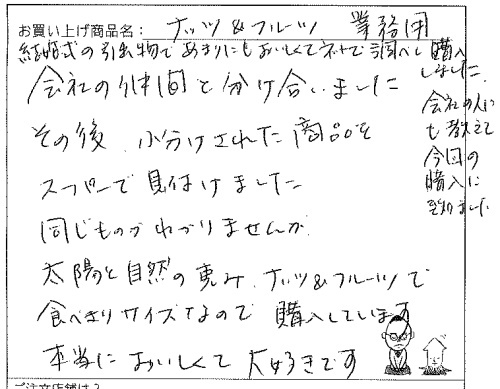 お買い上げ商品名: ナッツ&フルーツ 業務用
結婚式の引出物であまりにもおいしくてネットで調べ購入しました
会社の仲間と分け合いました
その後、小分けされた商品を
スーパーで見付けました
同じものかわかりませんが
太陽と自然の恵み、ナッツ&フルーツで
食べきりサイズなので購入しています
本当においしくて大好きです
会社の人に
も教えて
今回の
購入に
至りました
ご注文店舗は?